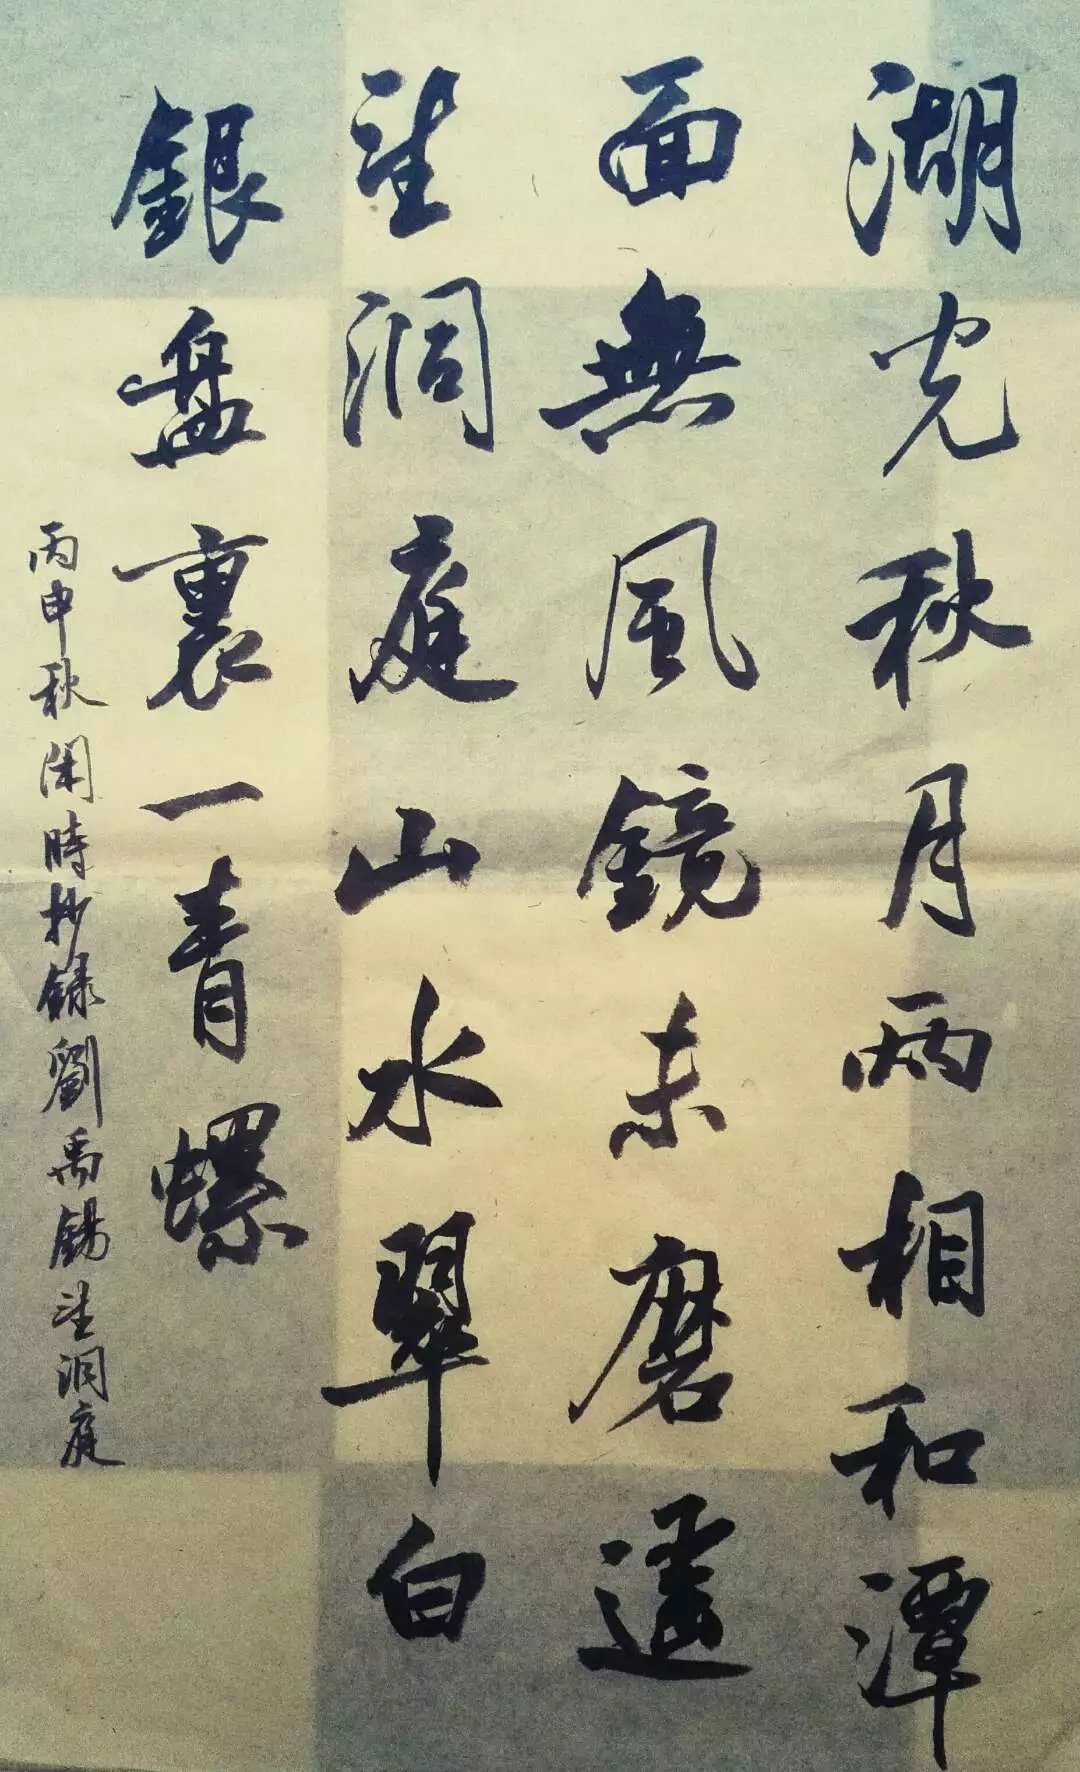 湖光秋月兩相和潭
面無風鏡未磨遥
望洞庭山水翠白
銀盤裏一青螺
丙申秋閑時抄録劉禹錫望洞庭